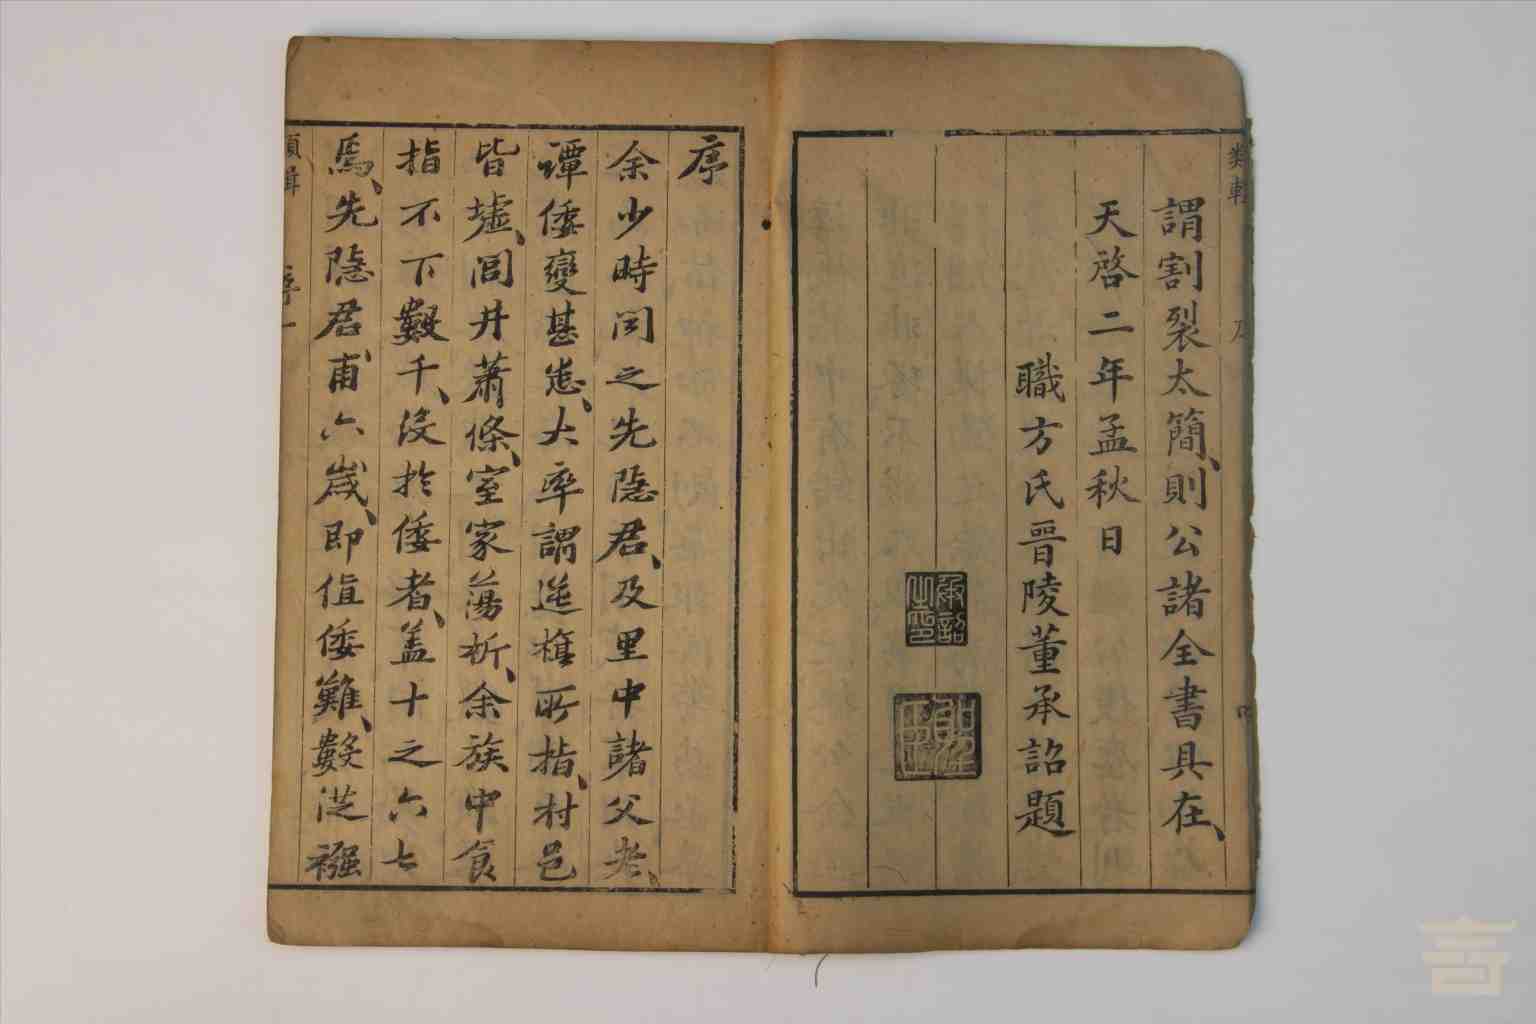 謂割裂太簡、則公諸全書具在、
天啓二年孟秋日
職方氏晉陵董承詔題
承詔之印
序
余少時同之先隱君、及里中諸父老、
譚倭變甚悉、大率謂逆櫓所指、村邑
皆墟、閭井蕭條、室家蕩析、余族中食
指不下數千、没於倭者、蓋十之六七
焉、先隱君甫六歲、即值倭難、數從襁
序一